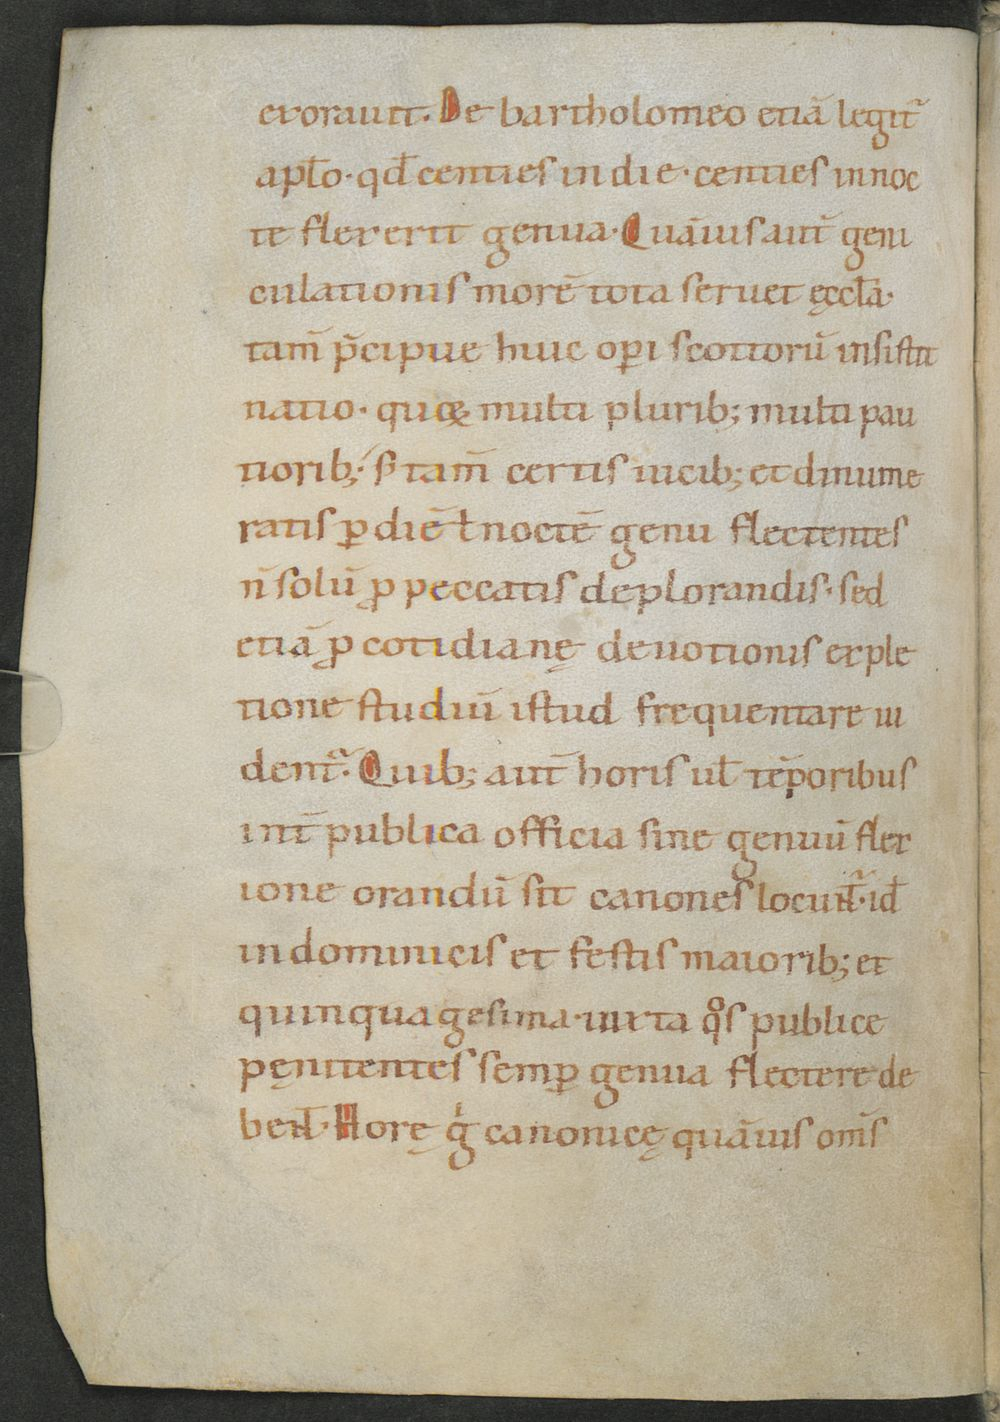 exorauit. De bartholomeo etiā legit᷑
apl̄o· qd̄ centies in die· centies in noc
te flexerit genua· Quāuis aut̄ geni
culationis morē tota seruet ęccl̄a·
tam̄ p̄cipue huic oꝑi scottorū insistit
natio· quoꝝ multi plurib; multi pau
tiorib; s; tam̄ certis uicib; et dinume
ratis ꝑ diē ł noctē genu flectentes
n̄ solū ꝓ peccatis deplorandis· sed
etiā ꝓ cotidianę deuotionis exple
tione studiū istud frequentare ui
dent᷑· Quib; aut̄ horis ul̄ tēporibus
int̄ publica officia sine genuū flex
ione orandū sit canones locunt᷑· id̄
in dominicis et festis maiorib; et
quinquagesima· iuxta qͦs publice
pęnitentes semꝑ genua flectere de
bent̄· Horę gͥ canonicę quāuis om̄s